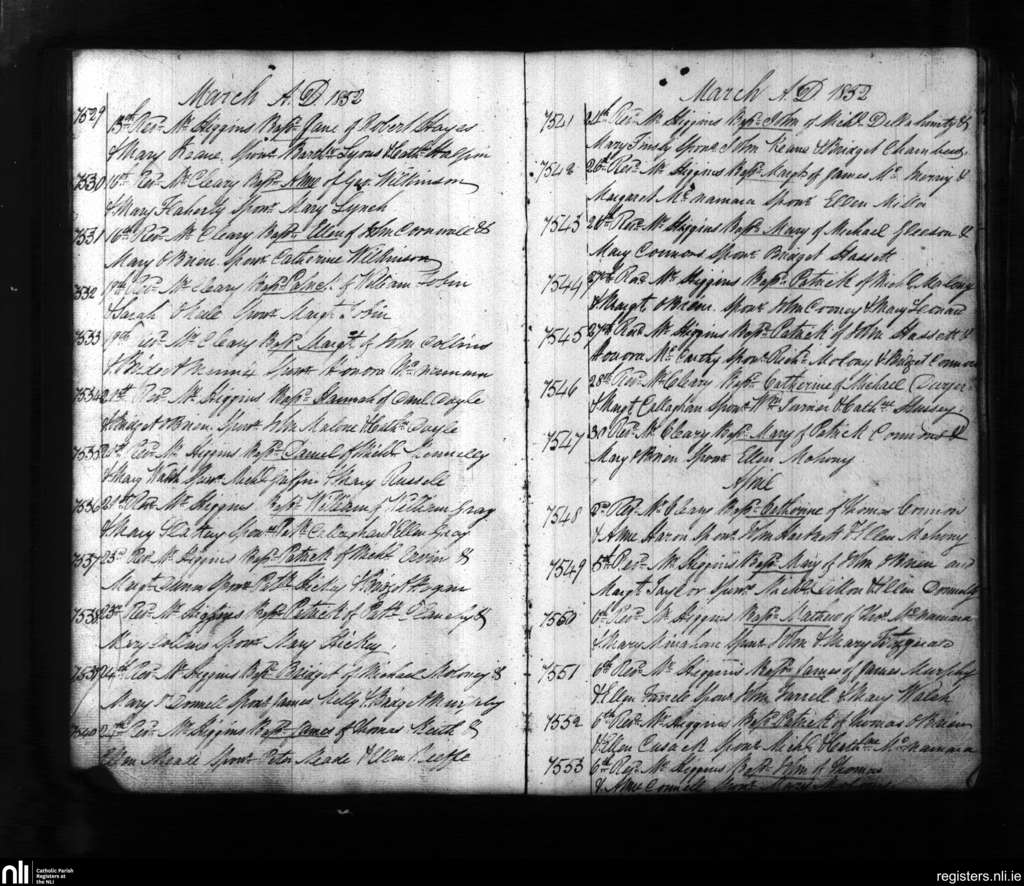 March A.D. 1852
7529 15th Revd. Mr. Higgins Bapt. Jane of Robert Hayes
& Mary Spons. Lyons & Cath.
7530 16th Revd. Mr. Cleary Bapt. Anne of Geo. Wilkinson
& Mary Flaherty Spons. Mary Lynch
7531 16th Revd. Mr. Cleary Bapt. Ellen of John Cornwall &
Mary O'Brien Spons. Catherine Wilkinson
7532 17th Revd. Mr. Cleary Bapt. of William Tobin
& Sarah O'Neile Spons. Margt. Tobin
7533 19th Revd. Mr. Cleary Bapt. Margt. of John Collins
& Bridget Spons. Honora McNamara
7534 21st Revd. Mr. Higgins Bapt. Hannah of Danl. Doyle
& Bridget O'Brien Spons. John Malone & Cath. Doyle
7535 21st Revd. Mr. Higgins Bapt. Daniel of Michl. Connelly
& Mary Walsh Spons. Michl. Griffin & Mary Russell
7536 21st Revd. Mr. Higgins Bapt. William of William Gray
& Mary Spons. Patk. Callaghan & Ellen Gray
7537 23rd Revd. Mr. Higgins Bapt. Patrick of Michl. &
Margt. Spons. Patk. Hickey & Bridget Hogan
7538 23rd Revd. Mr. Higgins Bapt. Patrick of Patk. &
Mary Collins Spons. Mary Hickey
7539 24th Revd. Mr. Higgins Bapt. Bridget of Michael Moloney &
Mary O'Donnell Spons. James Kelly & Bridget Murphy
7540 25th Revd. Mr. Higgins Bapt. James of Thomas Keith &
Ellen Meade Spons. Peter Meade & Ellen Keeffe
March A.D. 1852
7541 Revd. Mr. Higgins Bapt. John of Michl. &
Mary Spons. John Keane & Bridget Chambers
7542 26th Revd. Mr. Higgins Bapt. Margt. of James &
Margaret McNamara Spons. Ellen
7543 26th Revd. Mr. Higgins Bapt. Mary of Michael Gleeson &
Mary Connors Spons. Bridget Hassett
7544 27th Revd. Mr. Higgins Bapt. Patrick of Michl. Molony
& Margt. O'Brien Spons. John Cooney & Mary Leonard
7545 27th Revd. Mr. Higgins Bapt. Patrick of John Hassett &
Honora McCarthy Spons. Richd. Molony & Bridget Connors
7546 28th Revd. Mr. Cleary Bapt. Catherine of Michael
& Margt. Callaghan Spons. Wm. Turner & Cath. Hussey
7547 30 Revd. Mr. Cleary Bapt. Mary of Patrick Connors &
Mary O'Brien Spons. Ellen Mahony
April
7548 2nd Revd. Mr. Cleary Bapt. Catherine of Thomas Connor
& Anne Spons. John Hackett & Ellen Mahony
7549 5th Revd. Mr. Higgins Bapt. Mary of John O'Brien and
Margt. Taylor Spons. Michl. Dillon & Ellen Donnell
7550 6th Revd. Mr. Higgins Bapt. Mathew of Thos. McNamara
& Mary Minahan Spons. John & Mary Fitzgerald
7551 6th Revd. Mr. Higgins Bapt. James of James Murphy
& Ellen Farrell Spons. John Farrell & Mary Walsh
7552 6th Revd. Mr. Higgins Bapt. Patrick of Thomas O'Brien
& Ellen Cusack Spons. Michl. & Cathne. McNamara
7553 6th Revd. Mr. Higgins Bapt. John of Thomas
& Anne Connell Spons. Mary Molony
nli Catholic Parish
Registers at
the NLI
registers.nli.ie